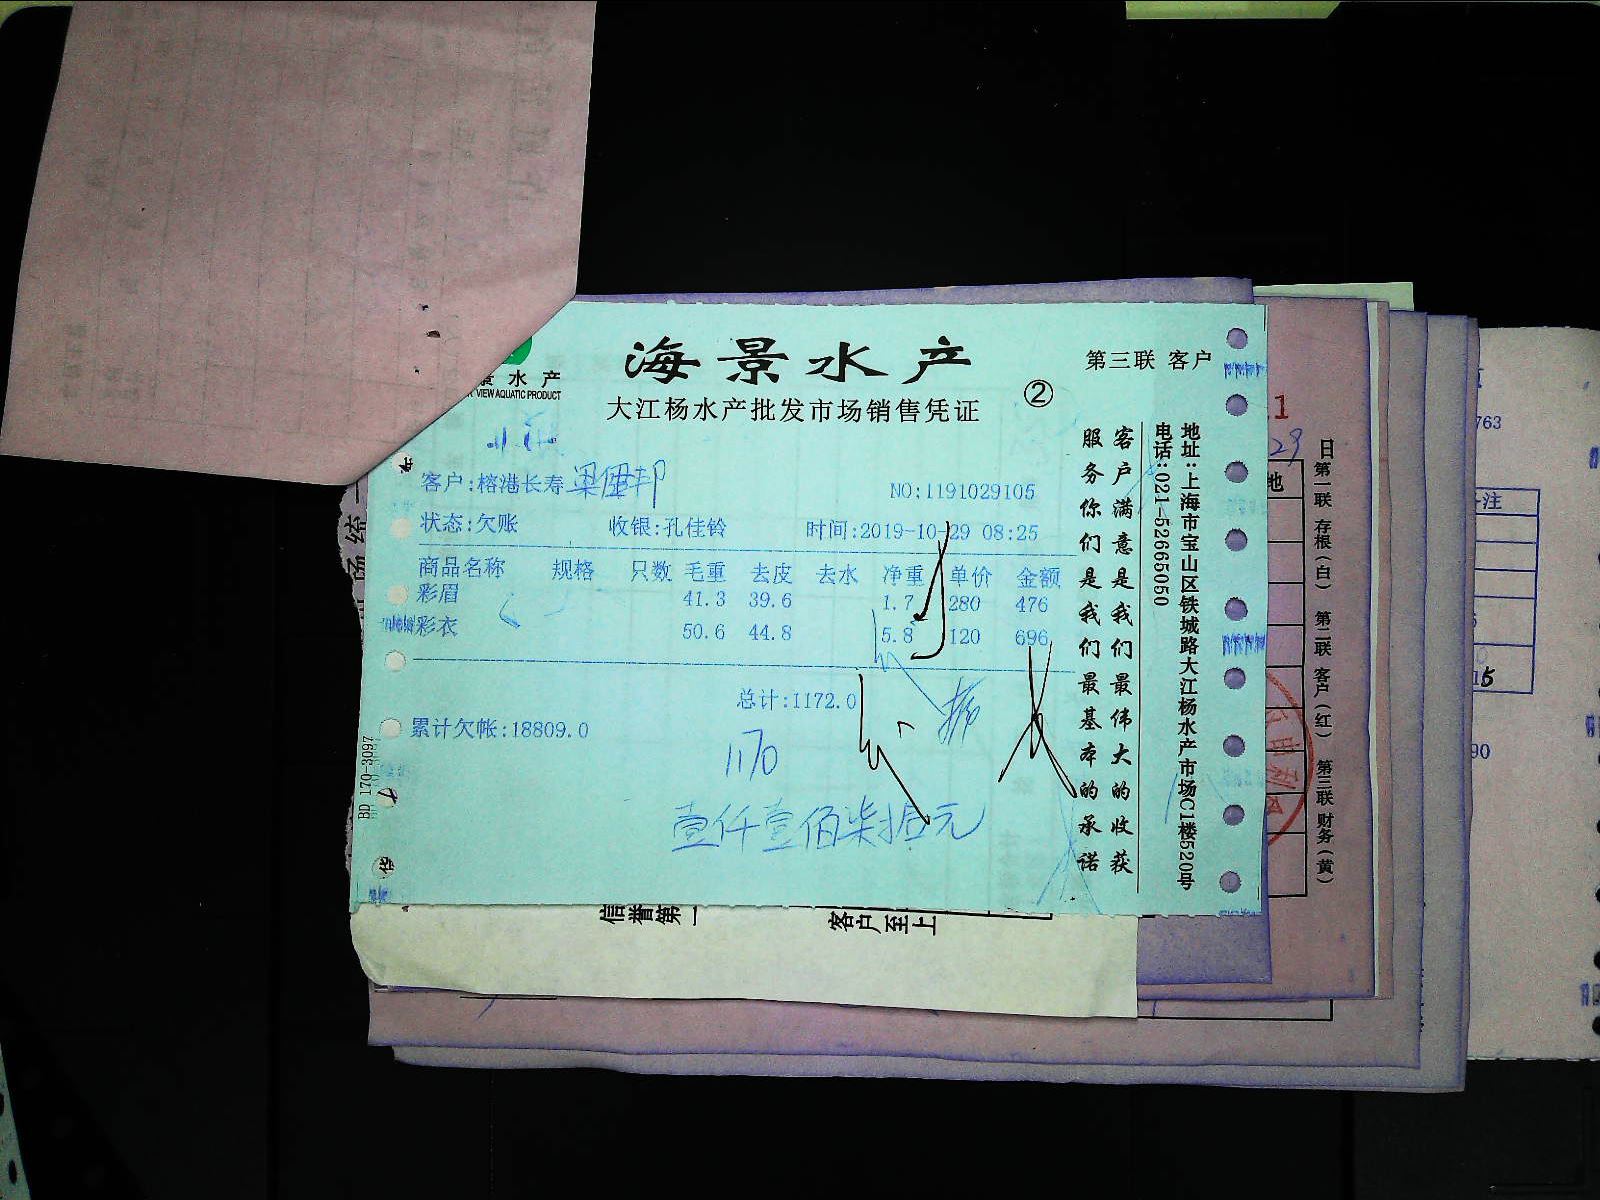 海景水产
第三联 客户
景水产
VIEW AQUATIC PRODUCT
大江杨水产批发市场销售凭证
②
客户:榕港长寿
NO:1191029105
状态:欠账 收银:孔佳铃 时间:2019-10-29 08:25
商品名称 规格 只数 毛重 去皮 去水 净重 单价 金额
彩眉 41.3 39.6 1.7 280 476
彩衣 50.6 44.8 5.8 120 696
总计:1172.0
累计欠帐:18809.0
1170
壹仟壹佰柒拾元
客户满意是我们最伟大的收获
服务你们是我们最基本的承诺
地址:上海市宝山区铁城路大江杨水产市场C1楼520号
电话:021-52665050
BD 170-3097
信誉第一
客户至上
29 日
第一联 存根(白) 第二联 客户(红) 第三联 财务(黄)
763
注
15
90